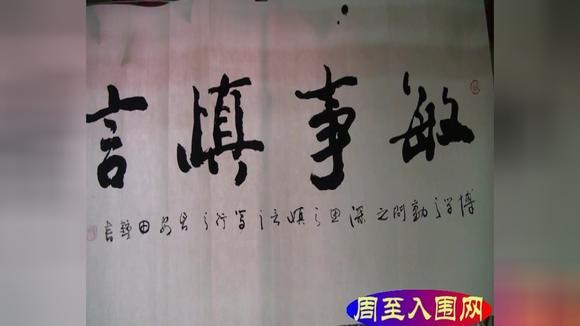 敏事慎言
博学之勤问之深思之慎言之笃行之
田钟书
周至入围网